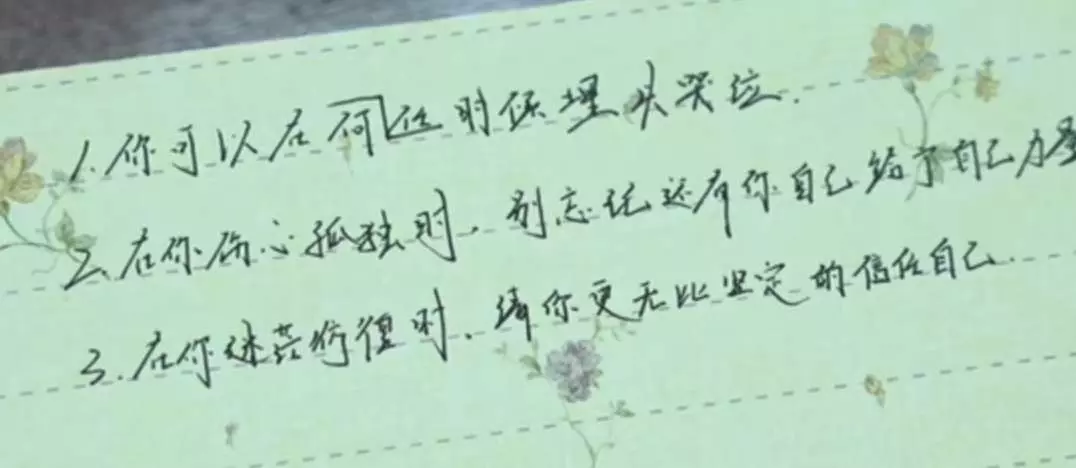 1.你可以在何任时候埋头哭泣.
2.在你伤心孤独时，别忘记还有你自己给予自己力量
3.在你迷茫彷徨时，请你更无比坚定的信任自己.